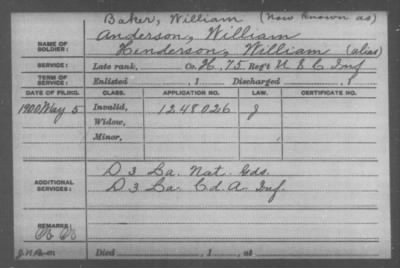 Baker, William (Now Known as)
NAME OF SOLDIER: Anderson, William
Henderson, William (alias)
SERVICE: Late rank, Co. H, 75 Reg't U S C Inf
TERM OF SERVICE: Enlisted , 1 Discharged , 1
DATE OF FILING. CLASS. APPLICATION NO. LAW. CERTIFICATE NO.
1900 May 5 Invalid, 1248026
Widow,
Minor,
ADDITIONAL SERVICES: D 3 La. Nat. Gds.
D 3 La. Cd. A. Inf.
REMARKS:
Died , 1 , at